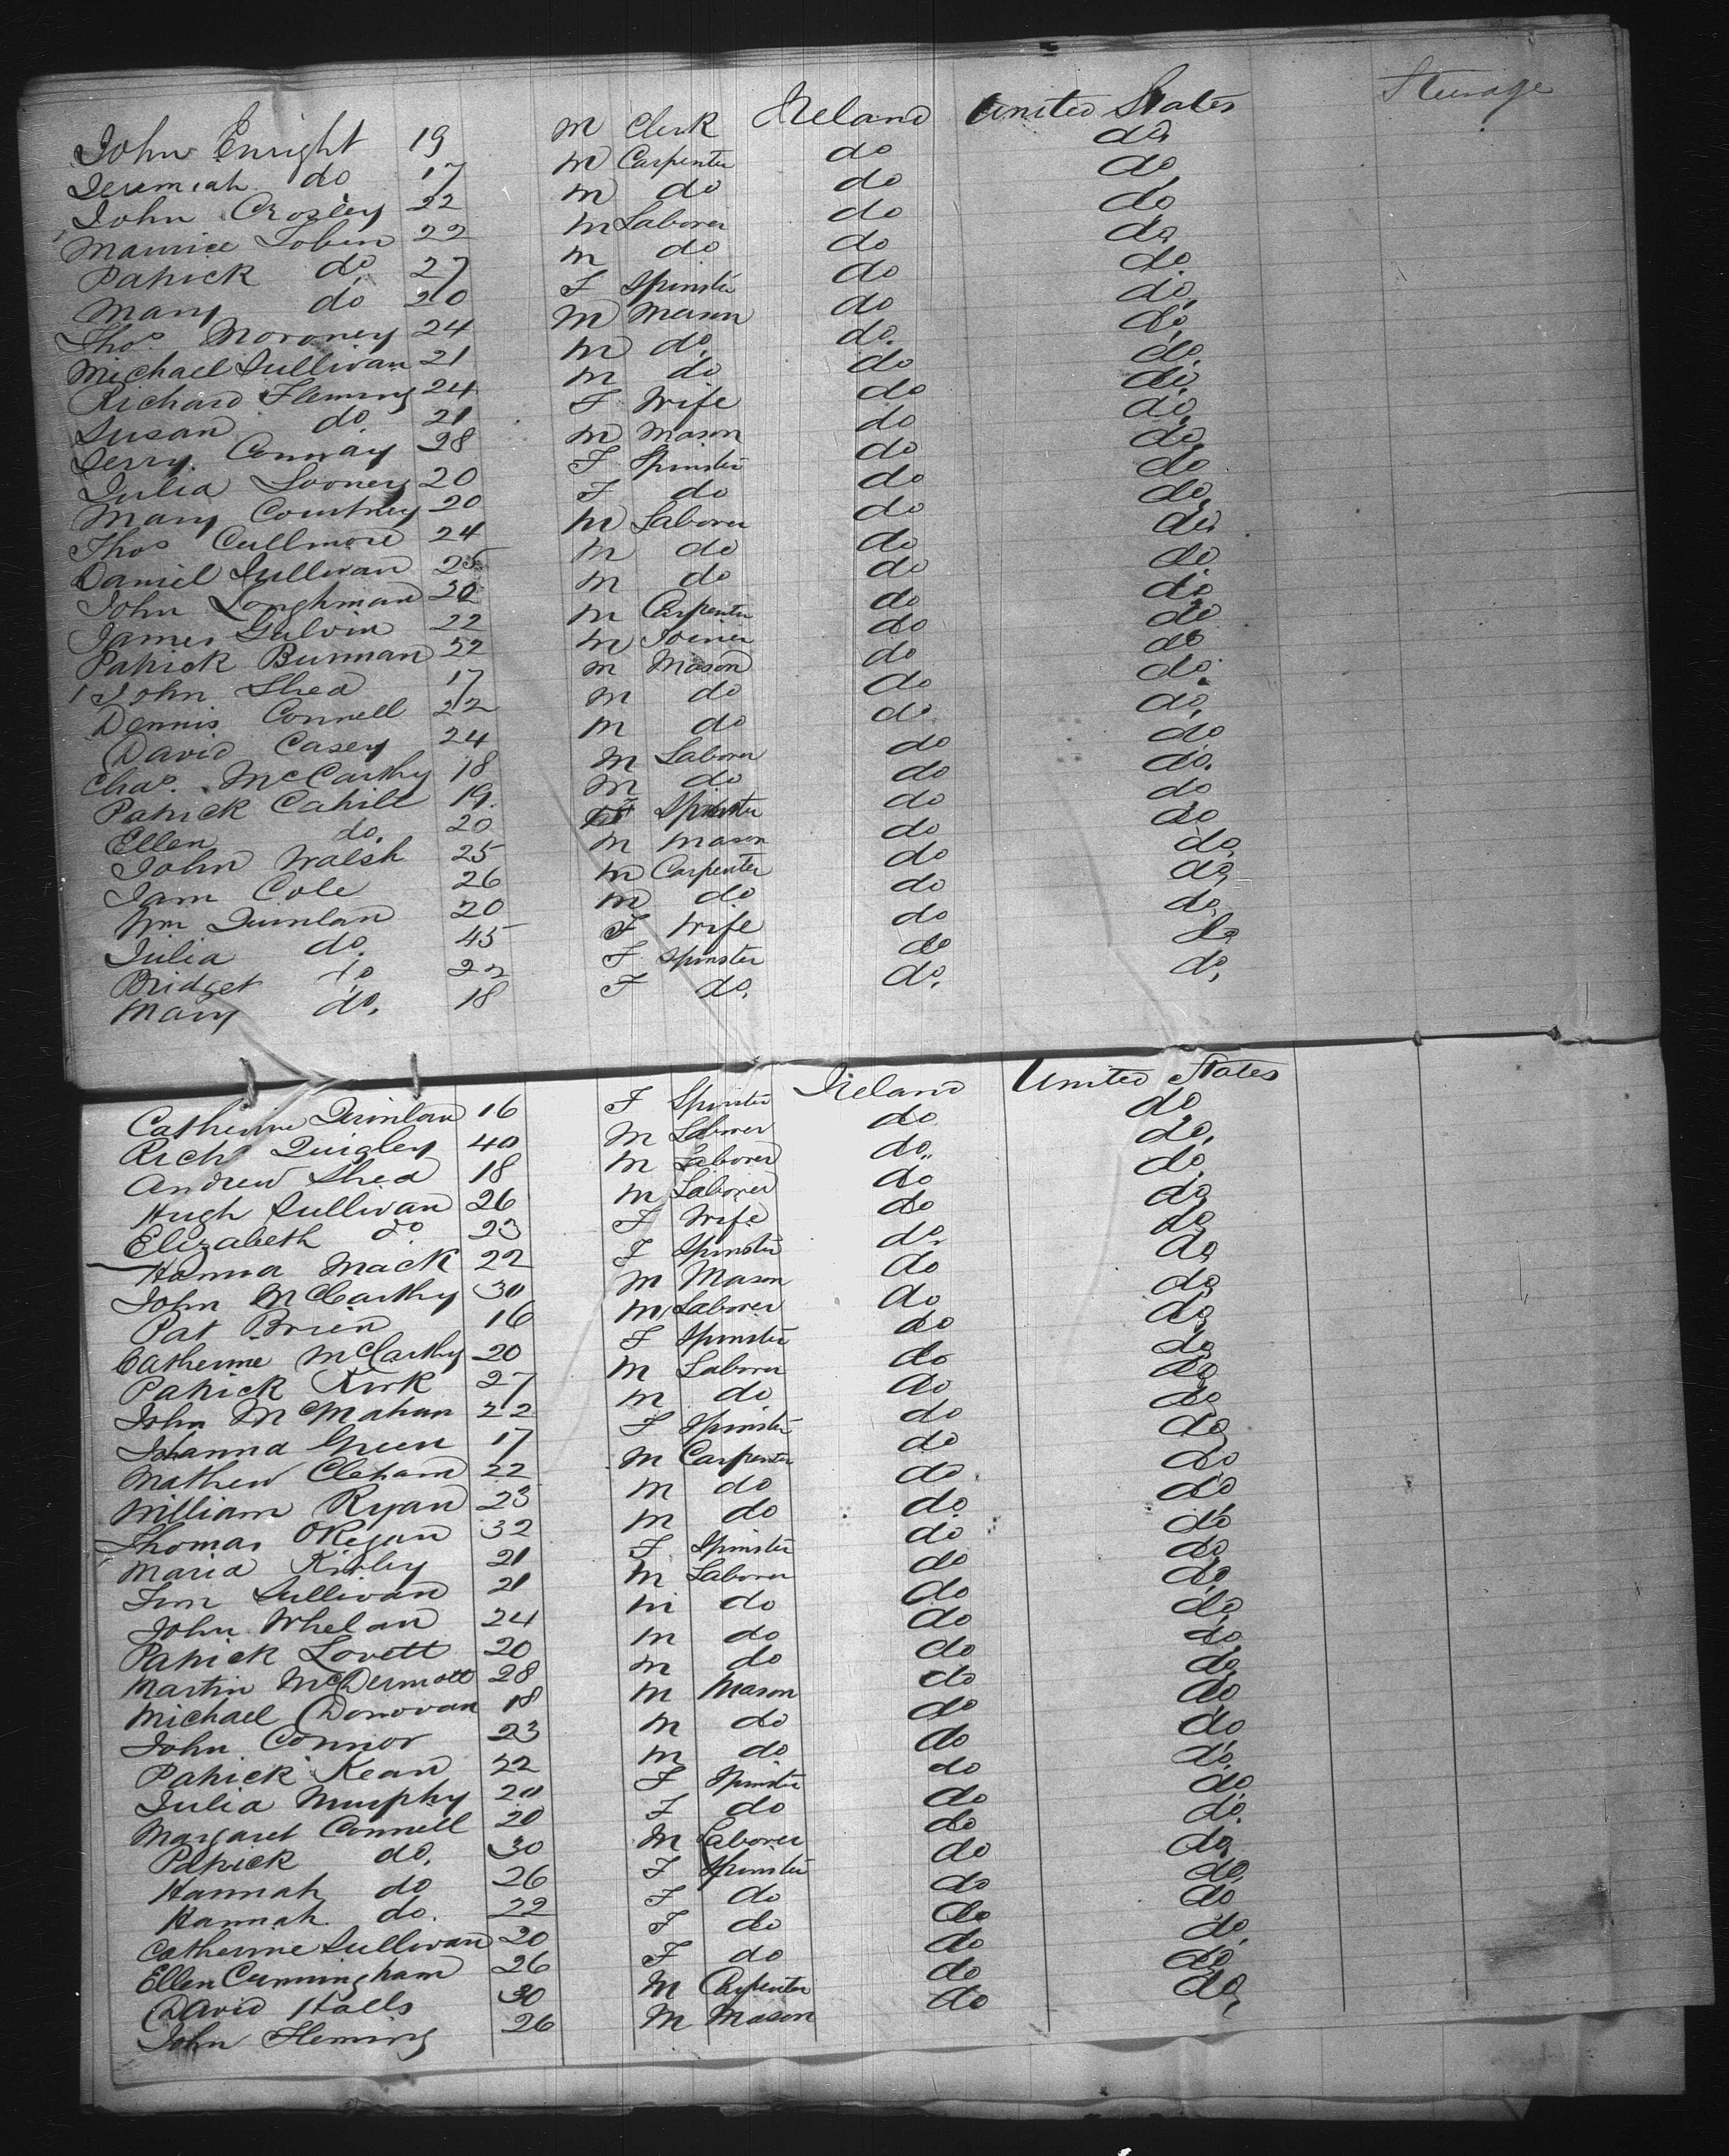 John Enright 19 M Clerk Ireland United States Steerage
Jeremiah do 17 M Carpenter do do
John Crosley 22 M do do do
Maurice Tobin 22 M Laborer do do
Patrick do 27 M do do do
Mary do 20 F Spinster do do
Thos. Moroney 24 M Mason do do
Michael Sullivan 21 M do do do
Richard Fleming 24 M do do do
Susan do 21 F Wife do do
Jerry Conway 28 M Mason do do
Julia Looney 20 F Spinster do do
Mary Courtney 20 F do do do
Thos Cullmore 24 M Laborer do do
Daniel Sullivan 25 M do do do
John Longhman 30 M do do do
James Galvin 22 M Carpenter do do
Patrick Burman 52 M Joiner do do
John Shea 17 M Mason do do
Dennis Connell 22 M do do do
David Casey 24 M do do do
Chas. McCarthy 18 M Laborer do do
Patrick Cahill 19 M do do do
Ellen do. 20 F Spinster do do
John Walsh 25 M Mason do do
Jam Cole 26 M Carpenter do do
Wm Quinlan 20 M do do do
Julia do. 45 F Wife do do
Bridget do 22 F Spinster do do
Mary do. 18 F do. do. do,
Catherine Quinlan 16 F Spinster Ireland United States
Richd Quigley 40 M Laborer do do
Andrew Shea 18 M Laborer do do
Hugh Sullivan 26 M Laborer do do
Elizabeth do 23 F Wife do do
Hanna Mack 22 F Spinster do do
John McCarthy 30 M Mason do do
Pat Brien 16 M Laborer do do
Catherine McCarthy 20 F Spinster do do
Patrick Kirk 27 M Laborer do do
John McMahan 22 M do do do
Johanna Green 17 F Spinster do do
Mathew Cleham 22 M Carpenter do do
William Ryan 23 M do do do
Thomas O'Regan 32 M do do do
Maria Kirby 21 F Spinster do do
Jim Sullivan 21 M Laborer do do
John Whelan 24 M do do do
Patrick Lovett 20 M do do do
Martin McDermott 28 M do do do
Michael Donovan 18 M Mason do do
John Connor 23 M do do do
Patrick Kean 22 M do do do
Julia Murphy 20 F Spinster do do
Margaret Connell 20 F do do do
Patrick do. 30 M Laborer do do
Hannah do 26 F Spinster do do
Hannah do. 22 F do do do
Catherine Sullivan 20 F do do do
Ellen Cunningham 26 F do do do
David Halls 30 M Carpenter do do
John Fleming 26 M Mason do do